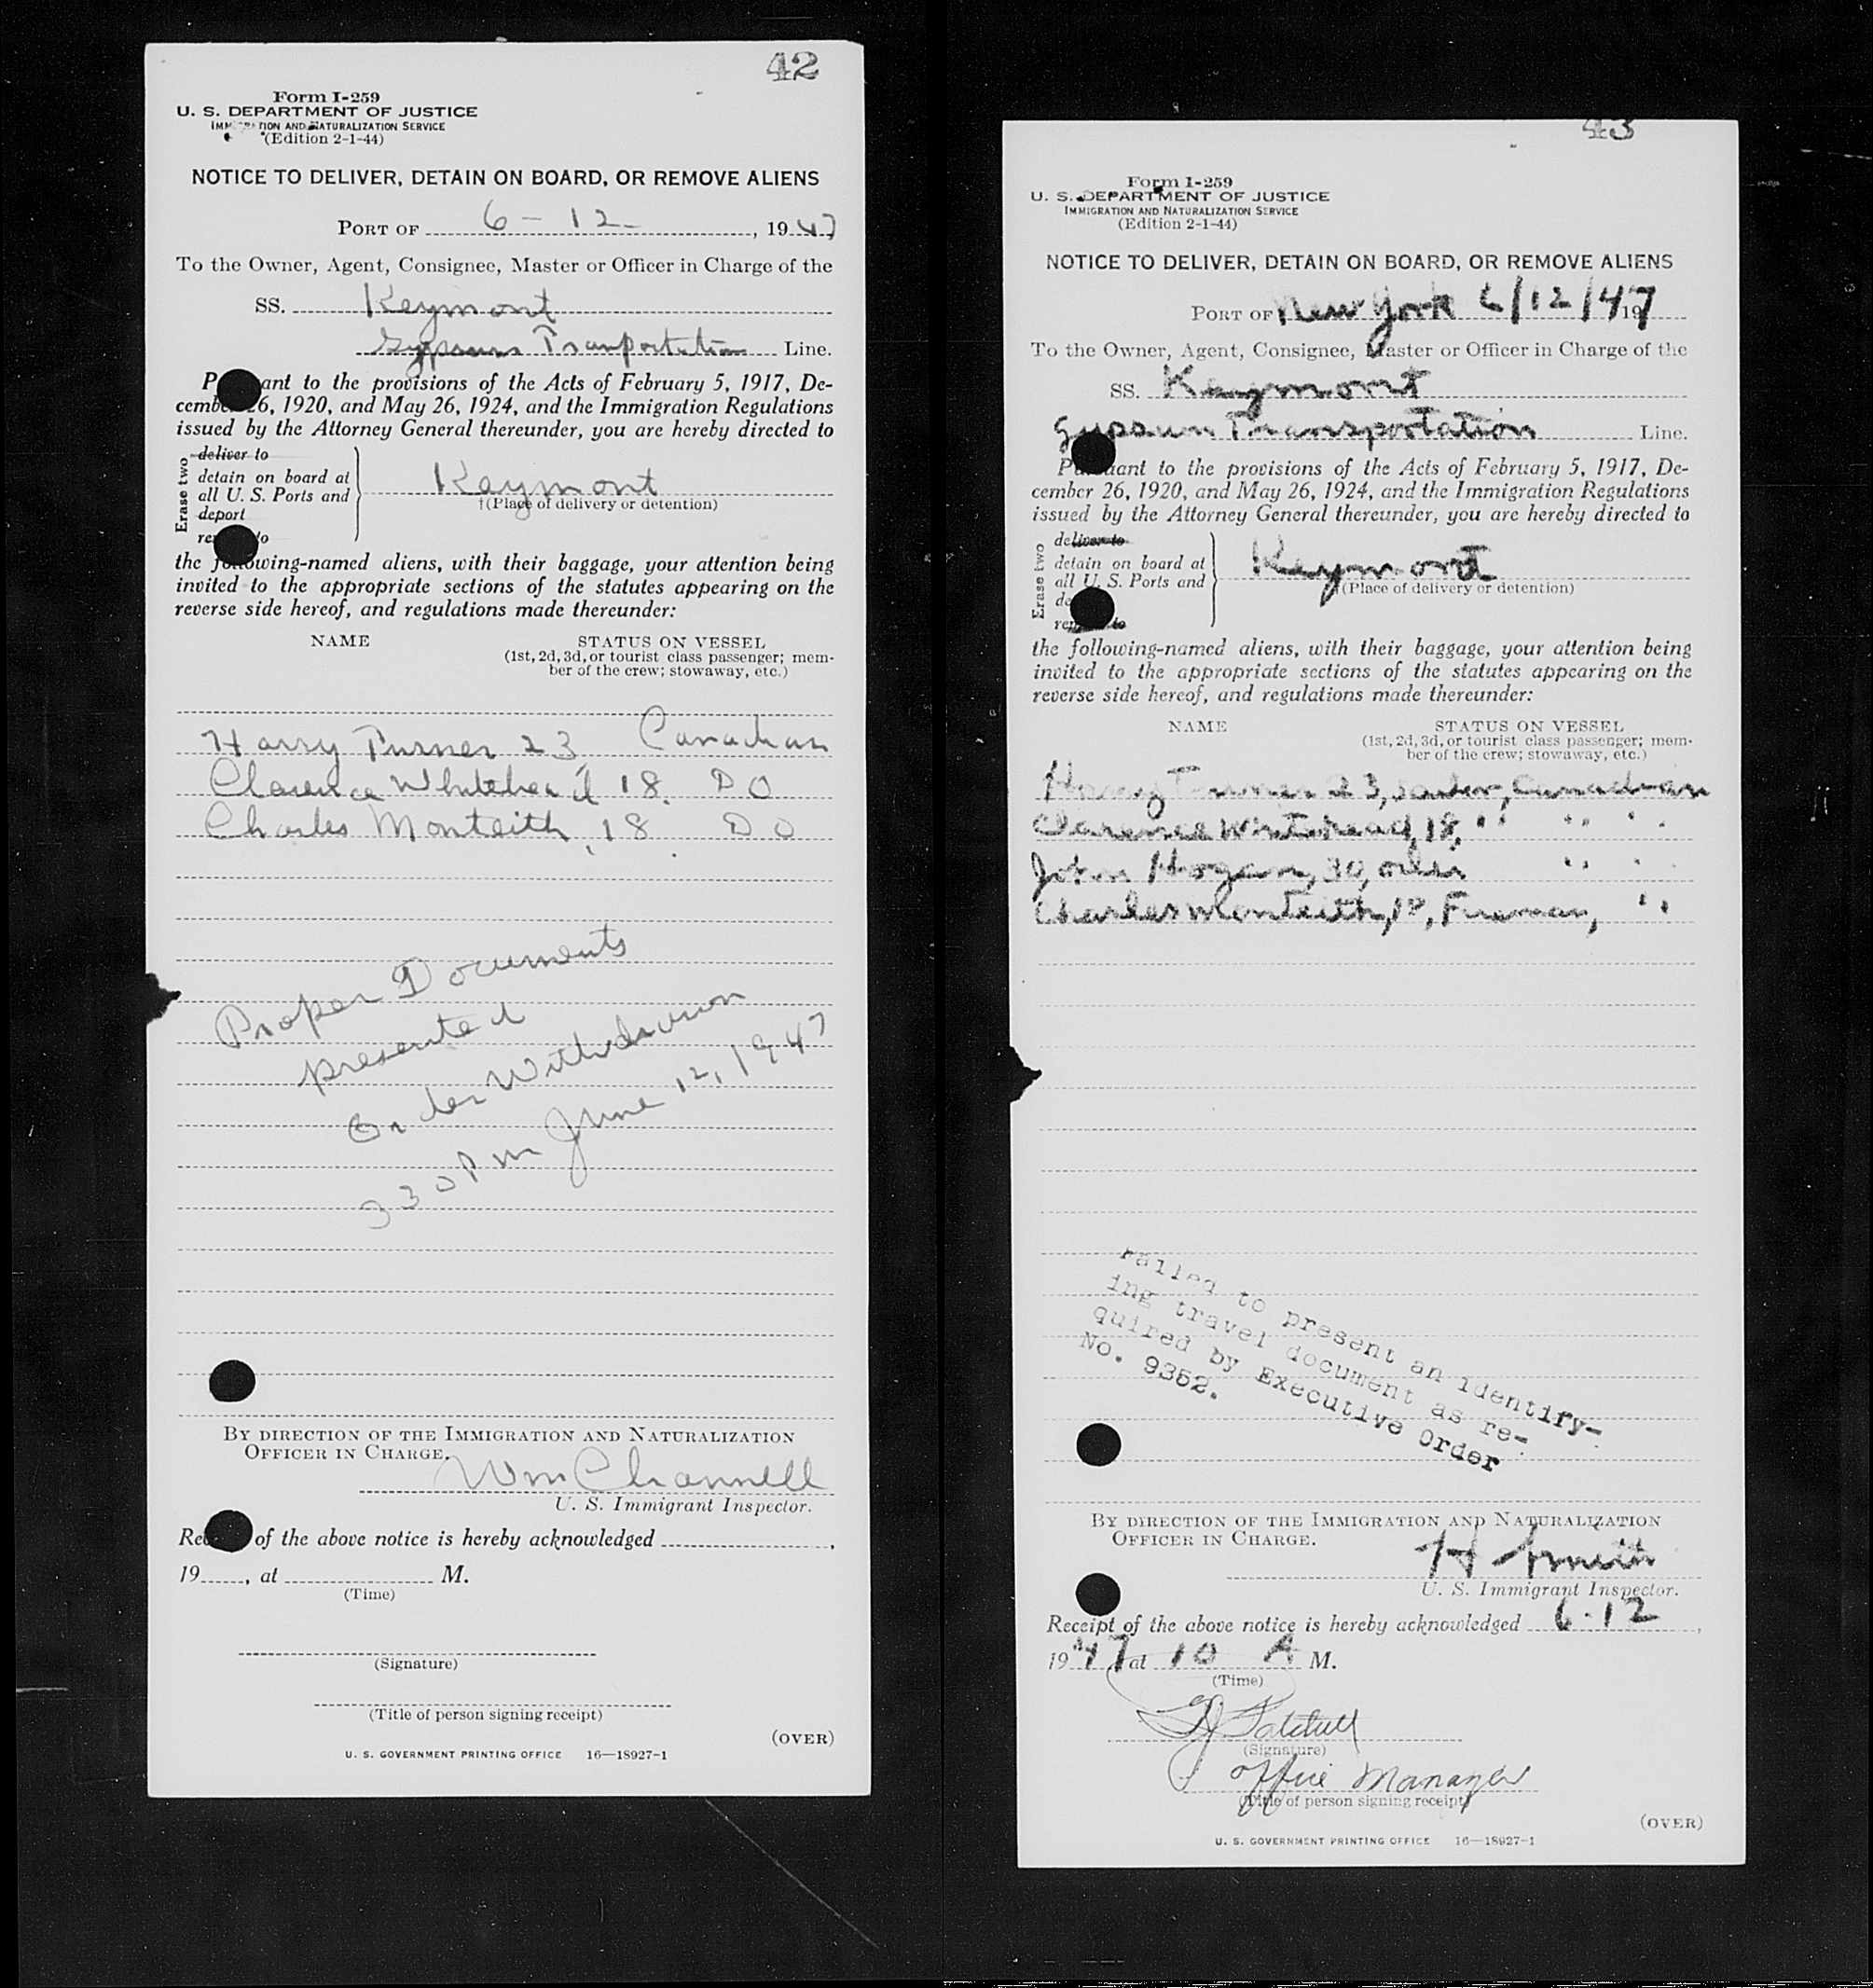 42
Form I-259
U. S. DEPARTMENT OF JUSTICE
IMMIGRATION AND NATURALIZATION SERVICE
(Edition 2-1-44)
NOTICE TO DELIVER, DETAIN ON BOARD, OR REMOVE ALIENS
PORT OF 6 - 12 -, 1947
To the Owner, Agent, Consignee, Master or Officer in Charge of the
SS. Keymont
Gypsum Tranportation Line.
Pursuant to the provisions of the Acts of February 5, 1917, De-
cember 26, 1920, and May 26, 1924, and the Immigration Regulations
issued by the Attorney General thereunder, you are hereby directed to
Erase two
deliver to
detain on board at
all U. S. Ports and
deport
remove to
Keymont
†(Place of delivery or detention)
the following-named aliens, with their baggage, your attention being
invited to the appropriate sections of the statutes appearing on the
reverse side hereof, and regulations made thereunder:
NAME STATUS ON VESSEL
(1st, 2d, 3d, or tourist class passenger; mem-
ber of the crew; stowaway, etc.)
Harry Turner 23, Canadian
Clarence Whitehead 18. DO
Charles Monteith, 18. DO
Proper Documents
presented
Order Withdrawn
330 Pm June 12, 1947
BY DIRECTION OF THE IMMIGRATION AND NATURALIZATION
OFFICER IN CHARGE.
Wm Channell
U. S. Immigrant Inspector.
Receipt of the above notice is hereby acknowledged ,
19 , at M.
(Time)
(Signature)
(Title of person signing receipt)
(OVER)
U. S. GOVERNMENT PRINTING OFFICE 16—18927-1
43
Form I-259
U. S. DEPARTMENT OF JUSTICE
IMMIGRATION AND NATURALIZATION SERVICE
(Edition 2-1-44)
NOTICE TO DELIVER, DETAIN ON BOARD, OR REMOVE ALIENS
PORT OF New York 6/12/47 19
To the Owner, Agent, Consignee, Master or Officer in Charge of the
SS. Keymont
Gypsum Transportation Line.
Pursuant to the provisions of the Acts of February 5, 1917, De-
cember 26, 1920, and May 26, 1924, and the Immigration Regulations
issued by the Attorney General thereunder, you are hereby directed to
Erase two
deliver to
detain on board at
all U. S. Ports and
deport
remove to
Keymont
†(Place of delivery or detention)
the following-named aliens, with their baggage, your attention being
invited to the appropriate sections of the statutes appearing on the
reverse side hereof, and regulations made thereunder:
NAME STATUS ON VESSEL
(1st, 2d, 3d, or tourist class passenger; mem-
ber of the crew; stowaway, etc.)
Harry Turner 23, sailor, Canadian
Clarence Whitehead, 18, " " "
John Hogan, 30, oiler " "
Charles Monteith, 18, Fireman, "
Failed to present an identify-
ing travel document as re-
quired by Executive Order
No. 9352.
BY DIRECTION OF THE IMMIGRATION AND NATURALIZATION
OFFICER IN CHARGE.
H Smith
U. S. Immigrant Inspector.
Receipt of the above notice is hereby acknowledged 6-12,
1947 at 10 A M.
(Time)
(Signature)
Office Manager
(Title of person signing receipt)
(OVER)
U. S. GOVERNMENT PRINTING OFFICE 16—18927-1